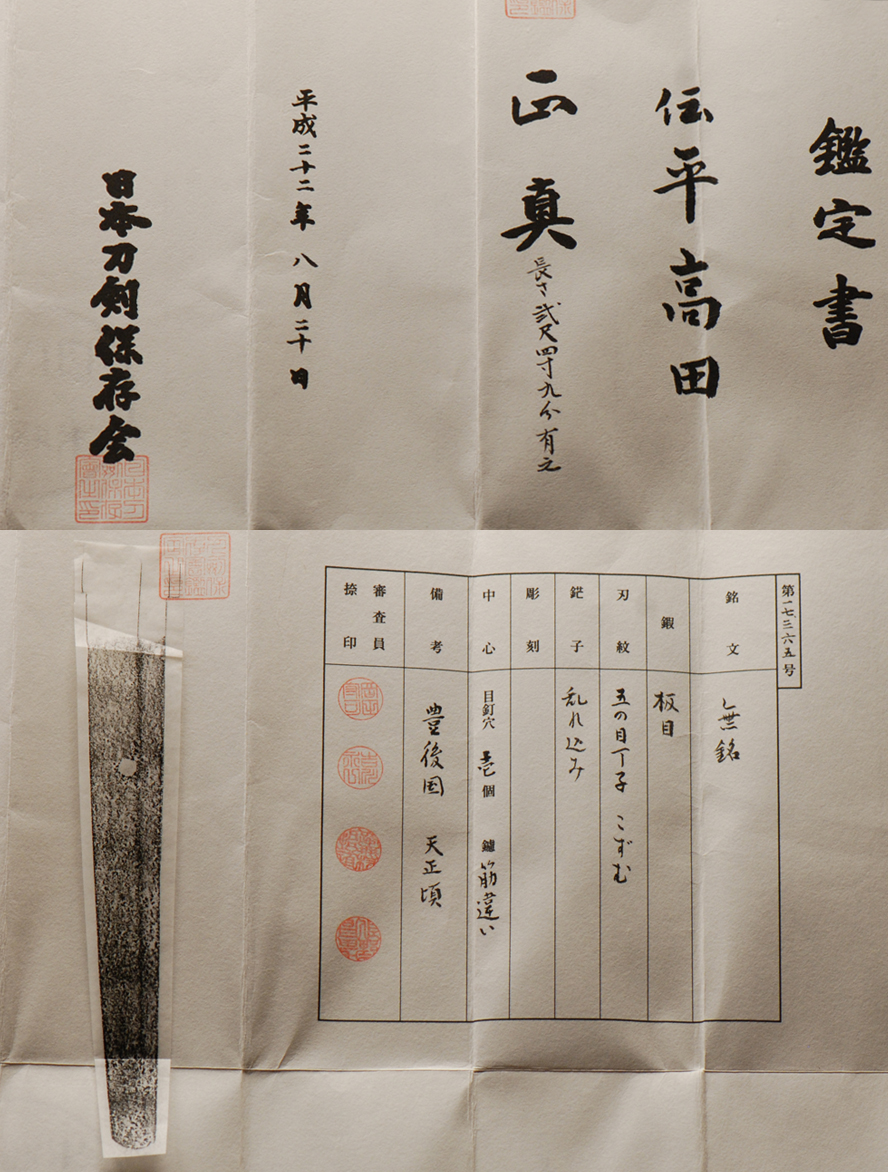 鑑定書
伝平高田
正真
長さ弐尺四寸九分有之
平成二十二年八月二十日
日本刀剣保存会
第一七三六五号
銘文
無銘
鍜
板目
刃紋
五の目丁子 こずむ
鋩子
乱れ込み
彫刻
中心
目釘穴 壱個 鑢 筋違い
備考
豊後国 天正頃
審査員
捺印